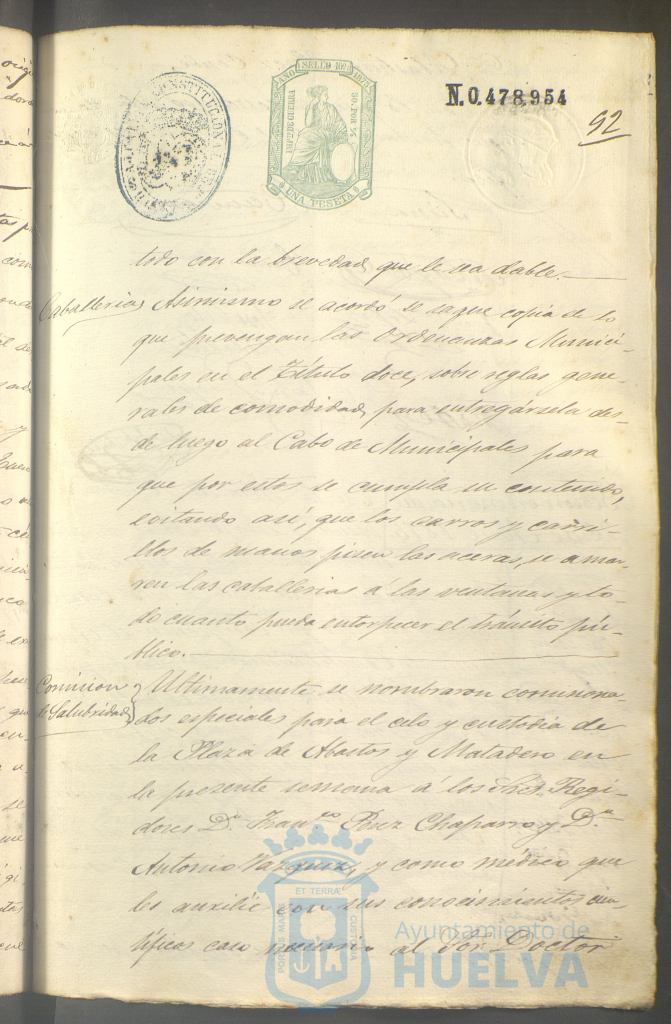 AÑO SELLO 10º 1875
IMPTO DE GUERRA
50. POR %
UNA PESETA
N.0.478,954
92
CONSTITUCIONAL
todo con la brevedad que le sea dable.
Caballerias
Asimismo se acordó se saque copia de lo
que prevengan las Ordenanzas Munici-
pales en el Título doce, sobre reglas gene-
rales de comodidad, para entregársela des-
de luego al Cabo de Municipales para
que por estos se cumpla su contenido,
evitando así, que los carros y carri-
llos de manos pisen las aceras, se amar-
ren las caballerias á las ventanas y to-
do cuanto pueda entorpecer el tránsito pú-
blico.
Comision
de Salubridad
Ultimamente se nombraron comisiona-
dos especiales para el celo y custodia de
la Plaza de Abastos y Matadero en
la presente semana á los Sres Regi-
dores Dn. Franco Perez Chaparro y Dn.
Antonio Vazquez, y como médico que
les auxilie con sus conocimientos cien
tíficos caso necesario al Sor. Doctor
PORTUS MARIS ET TERRÆ CUSTODIA
Ayuntamiento de
HUELVA